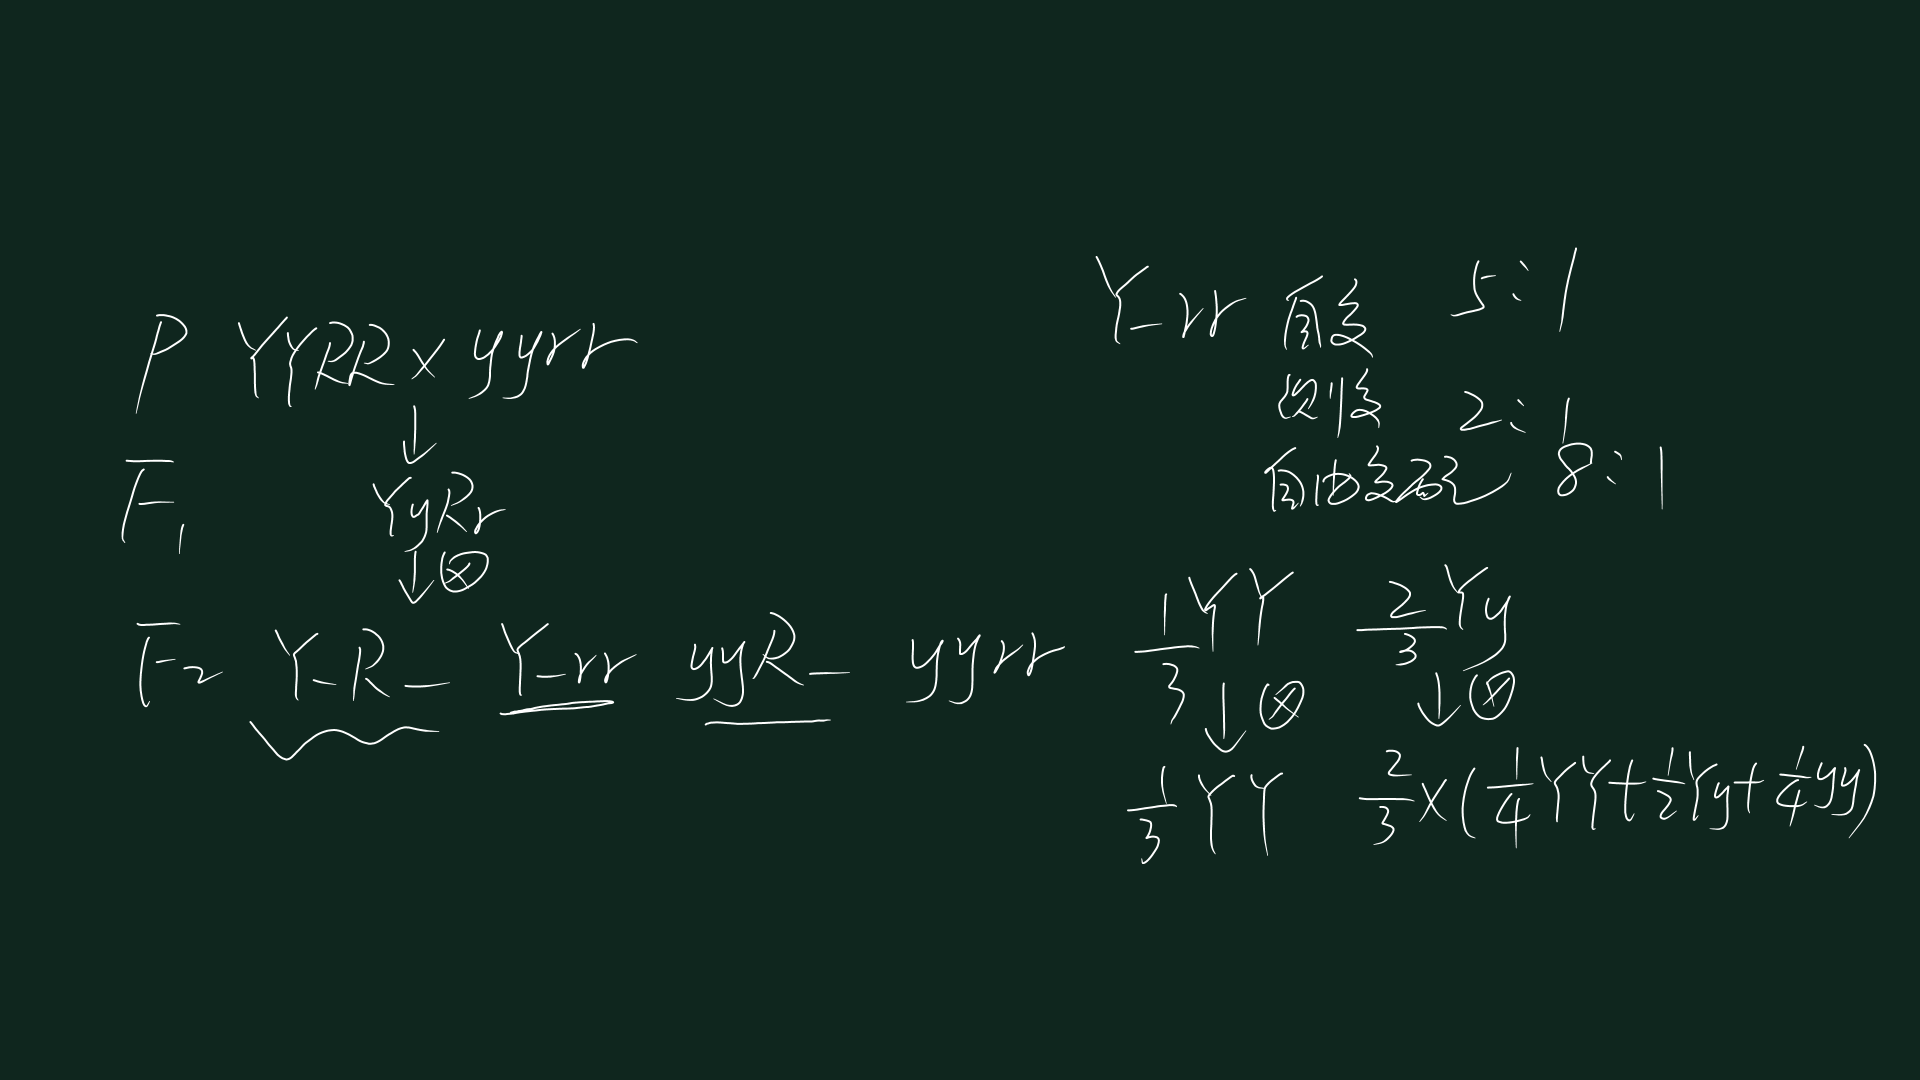 P YYRR × yyrr
↓
F₁ YyRr
↓⊗
F₂ Y_R_ Y_rr yyR_ yyrr
Y_rr 自交 5:1
测交 2:1
自由交配 8:1
1/3 YY 2/3 Yy
↓⊗ ↓⊗
1/3 YY 2/3×(1/4YY+1/2Yy+1/4yy)